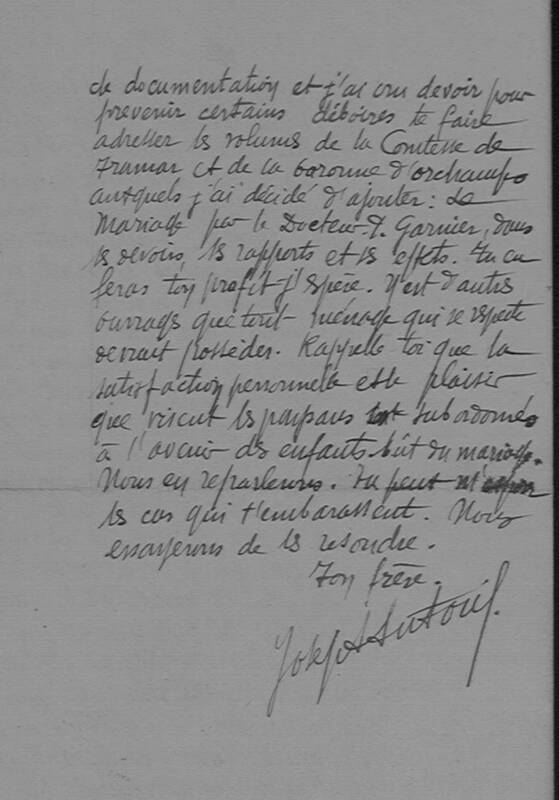 de documentation et j'ai cru devoir pour
prevenir certains déboires te faire
adresser les volumes de la Comtesse de
Tramar et de la baronne d'orchamps
auxquels j'ai décidé d'ajouter : Le
Mariage par le Docteur P. Garnier, dans
les devoirs, les rapports et les effets. Tu en
feras ton profit j'espère. Il y est d'autres
ouvrages que tout ménage qui se respecte
devrait posséder. Rappelle toi que la
satisfaction personnelle et le plaisir
que visent les paysans est subordonnés
à l'avenir des enfants bût du mariage.
Nous en reparlerons. Tu peut m'
les cas qui t'embarassent. Nous
essayerons de les resoudre.
Ton frère.
Joseph